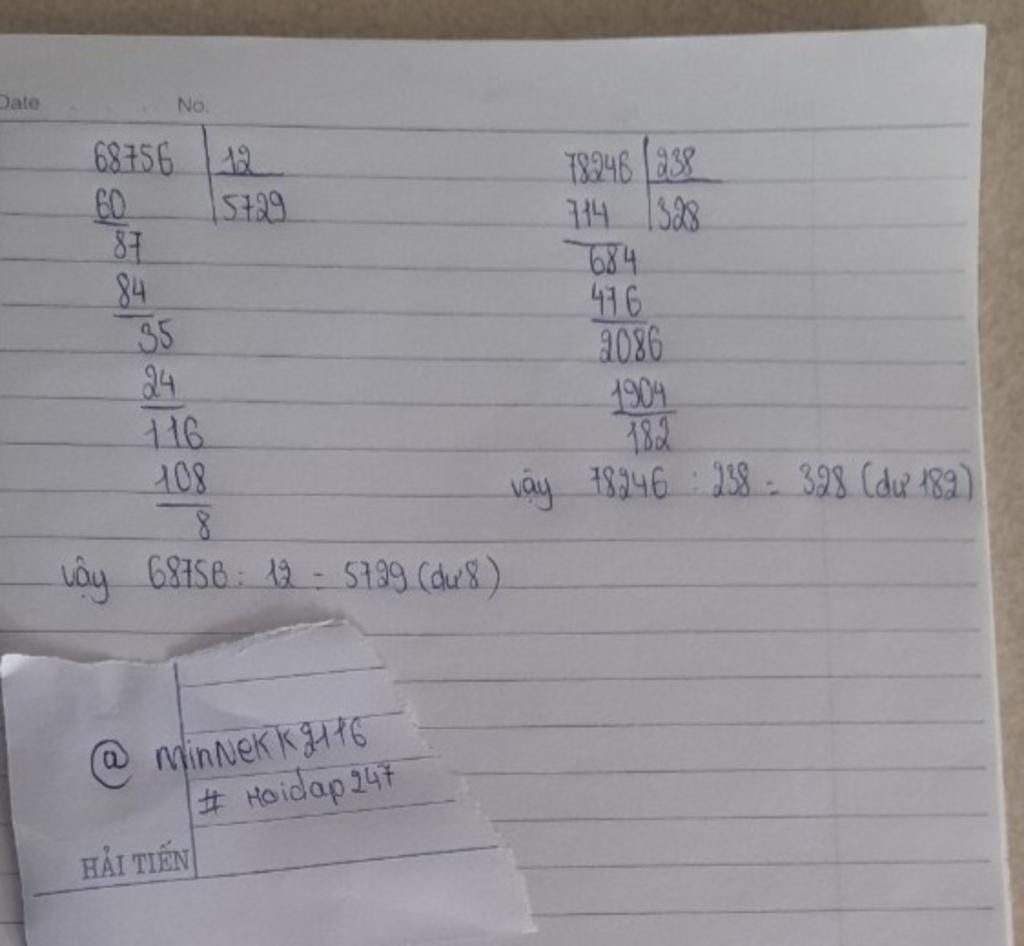 Date No.
68756 12
60 5729
87
84
35
24
116
108
8
vậy 68756 : 12 = 5729 (dư 8)
78246 238
714 328
684
476
2086
1904
182
vậy 78246 : 238 = 328 (dư 182)
@ MinNeKK2116
# Hoidap247
HẢI TIẾN